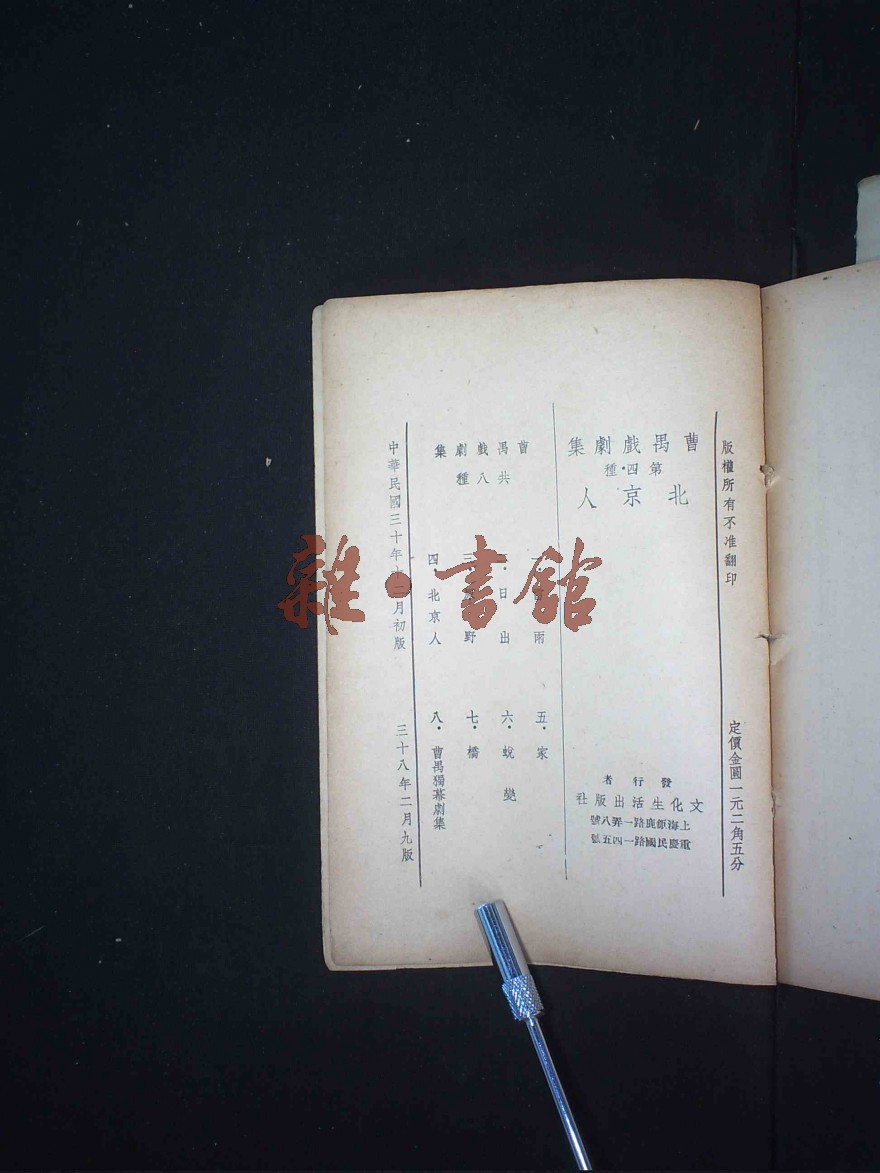 版權所有不准翻印
定價金圓一元二角五分
曹禺戲劇集
第四·種
北京人
發行者
文化生活出版社
上海鉅鹿路一弄八號
重慶民國路一四五號
曹禺戲劇集
共八種
雨
日出
三 野
四·北京人
五·家
六·蛻變
七·橋
八·曹禺獨幕劇集
中華民國三十年十二月初版
三十八年二月九版
雜·書館